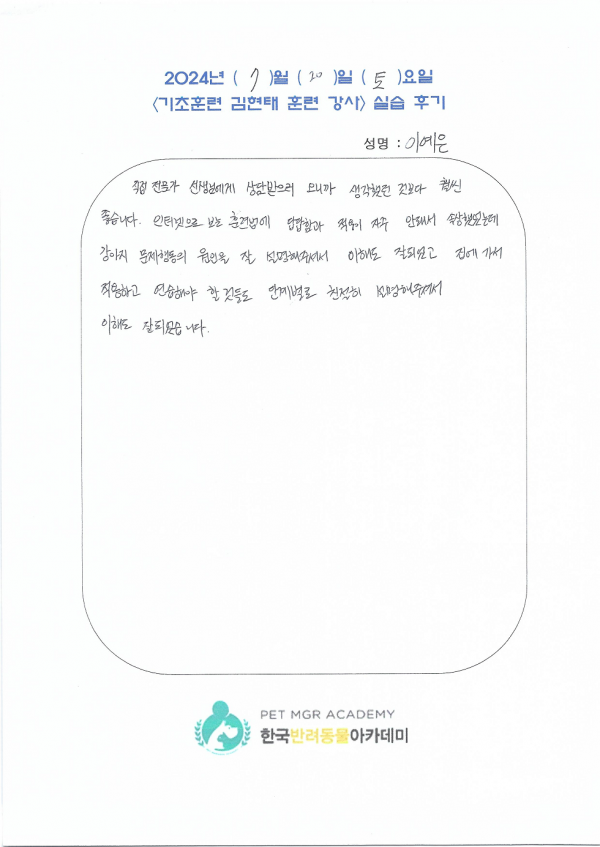 2024년 ( 7 )월 ( 20 )일 ( 토 )요일
<기초훈련 김현태 훈련 강사> 실습 후기
성명 : 이예은
직접 전문가 선생님에게 상담받으러 오니까 생각했던 것보다 훨씬
좋습니다. 인터넷으로 보는 훈련법에 답답함과 적용이 자주 안돼서 속상했었는데
강아지 문제행동의 원인을 잘 설명해주셔서 이해도 잘되었고 집에 가서
적용하고 연습해야 할 것들도 단계별로 친절히 설명해주셔서
이해도 잘되었습니다.
PET MGR ACADEMY
한국반려동물아카데미